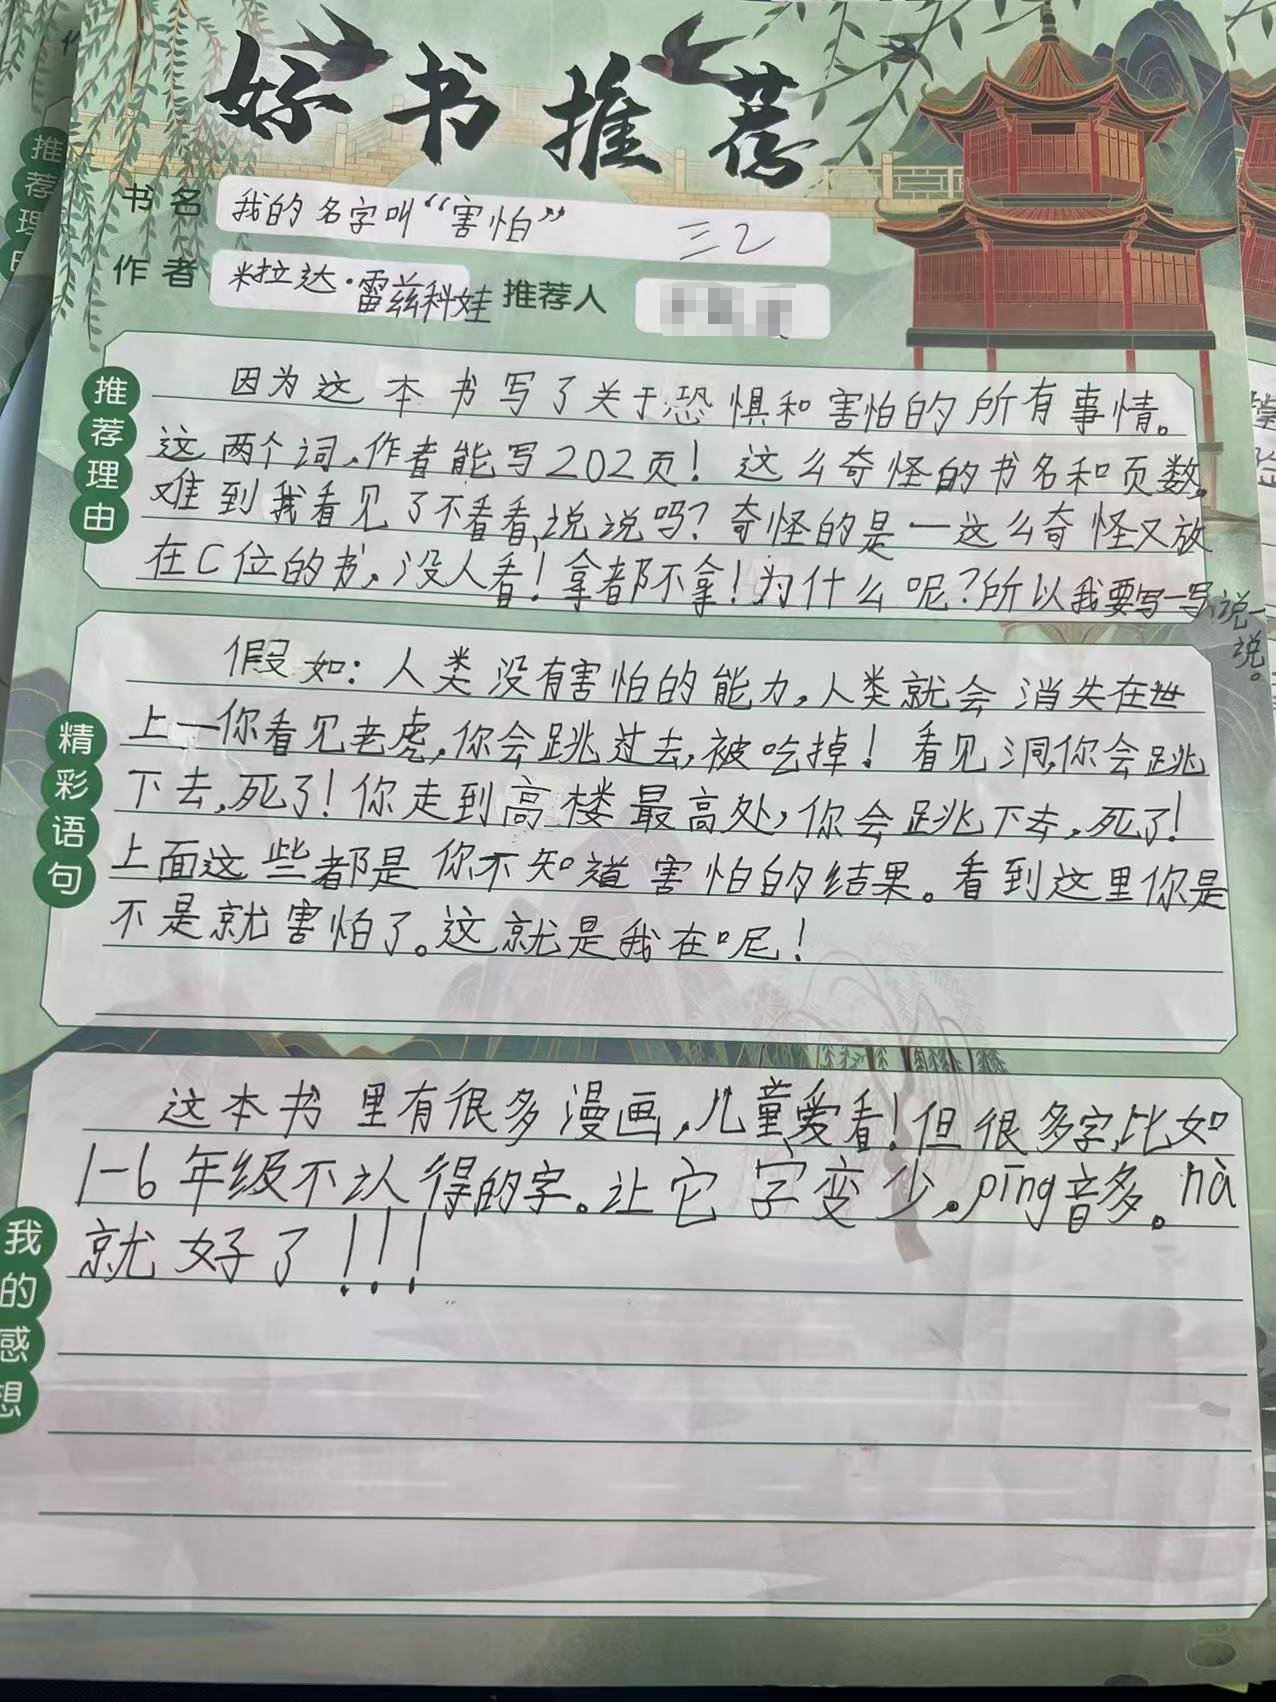 好书推荐
书名 我的名字叫“害怕” 三2
作者 米拉达·雷兹科娃 推荐人
推荐理由
因为这本书写了关于恐惧和害怕的所有事情。
这两个词,作者能写202页!这么奇怪的书名和页数,
难到我看见了不看看,说说吗?奇怪的是一这么奇怪又放
在C位的书,没人看!拿都不拿!为什么呢?所以我要写一写,说一说。
精彩语句
假如:人类没有害怕的能力,人类就会消失在世
上一你看见老虎,你会跳过去,被吃掉!看见洞,你会跳
下去,死了!你走到高楼最高处,你会跳下去,死了!
上面这些都是你不知道害怕的结果。看到这里你是
不是就害怕了。这就是我在呢!
我的感想
这本书里有很多漫画,儿童爱看!但很多字,比如
1-6年级不认得的字。让它字变少。pīng音多。nà
就好了!!!
推荐理由